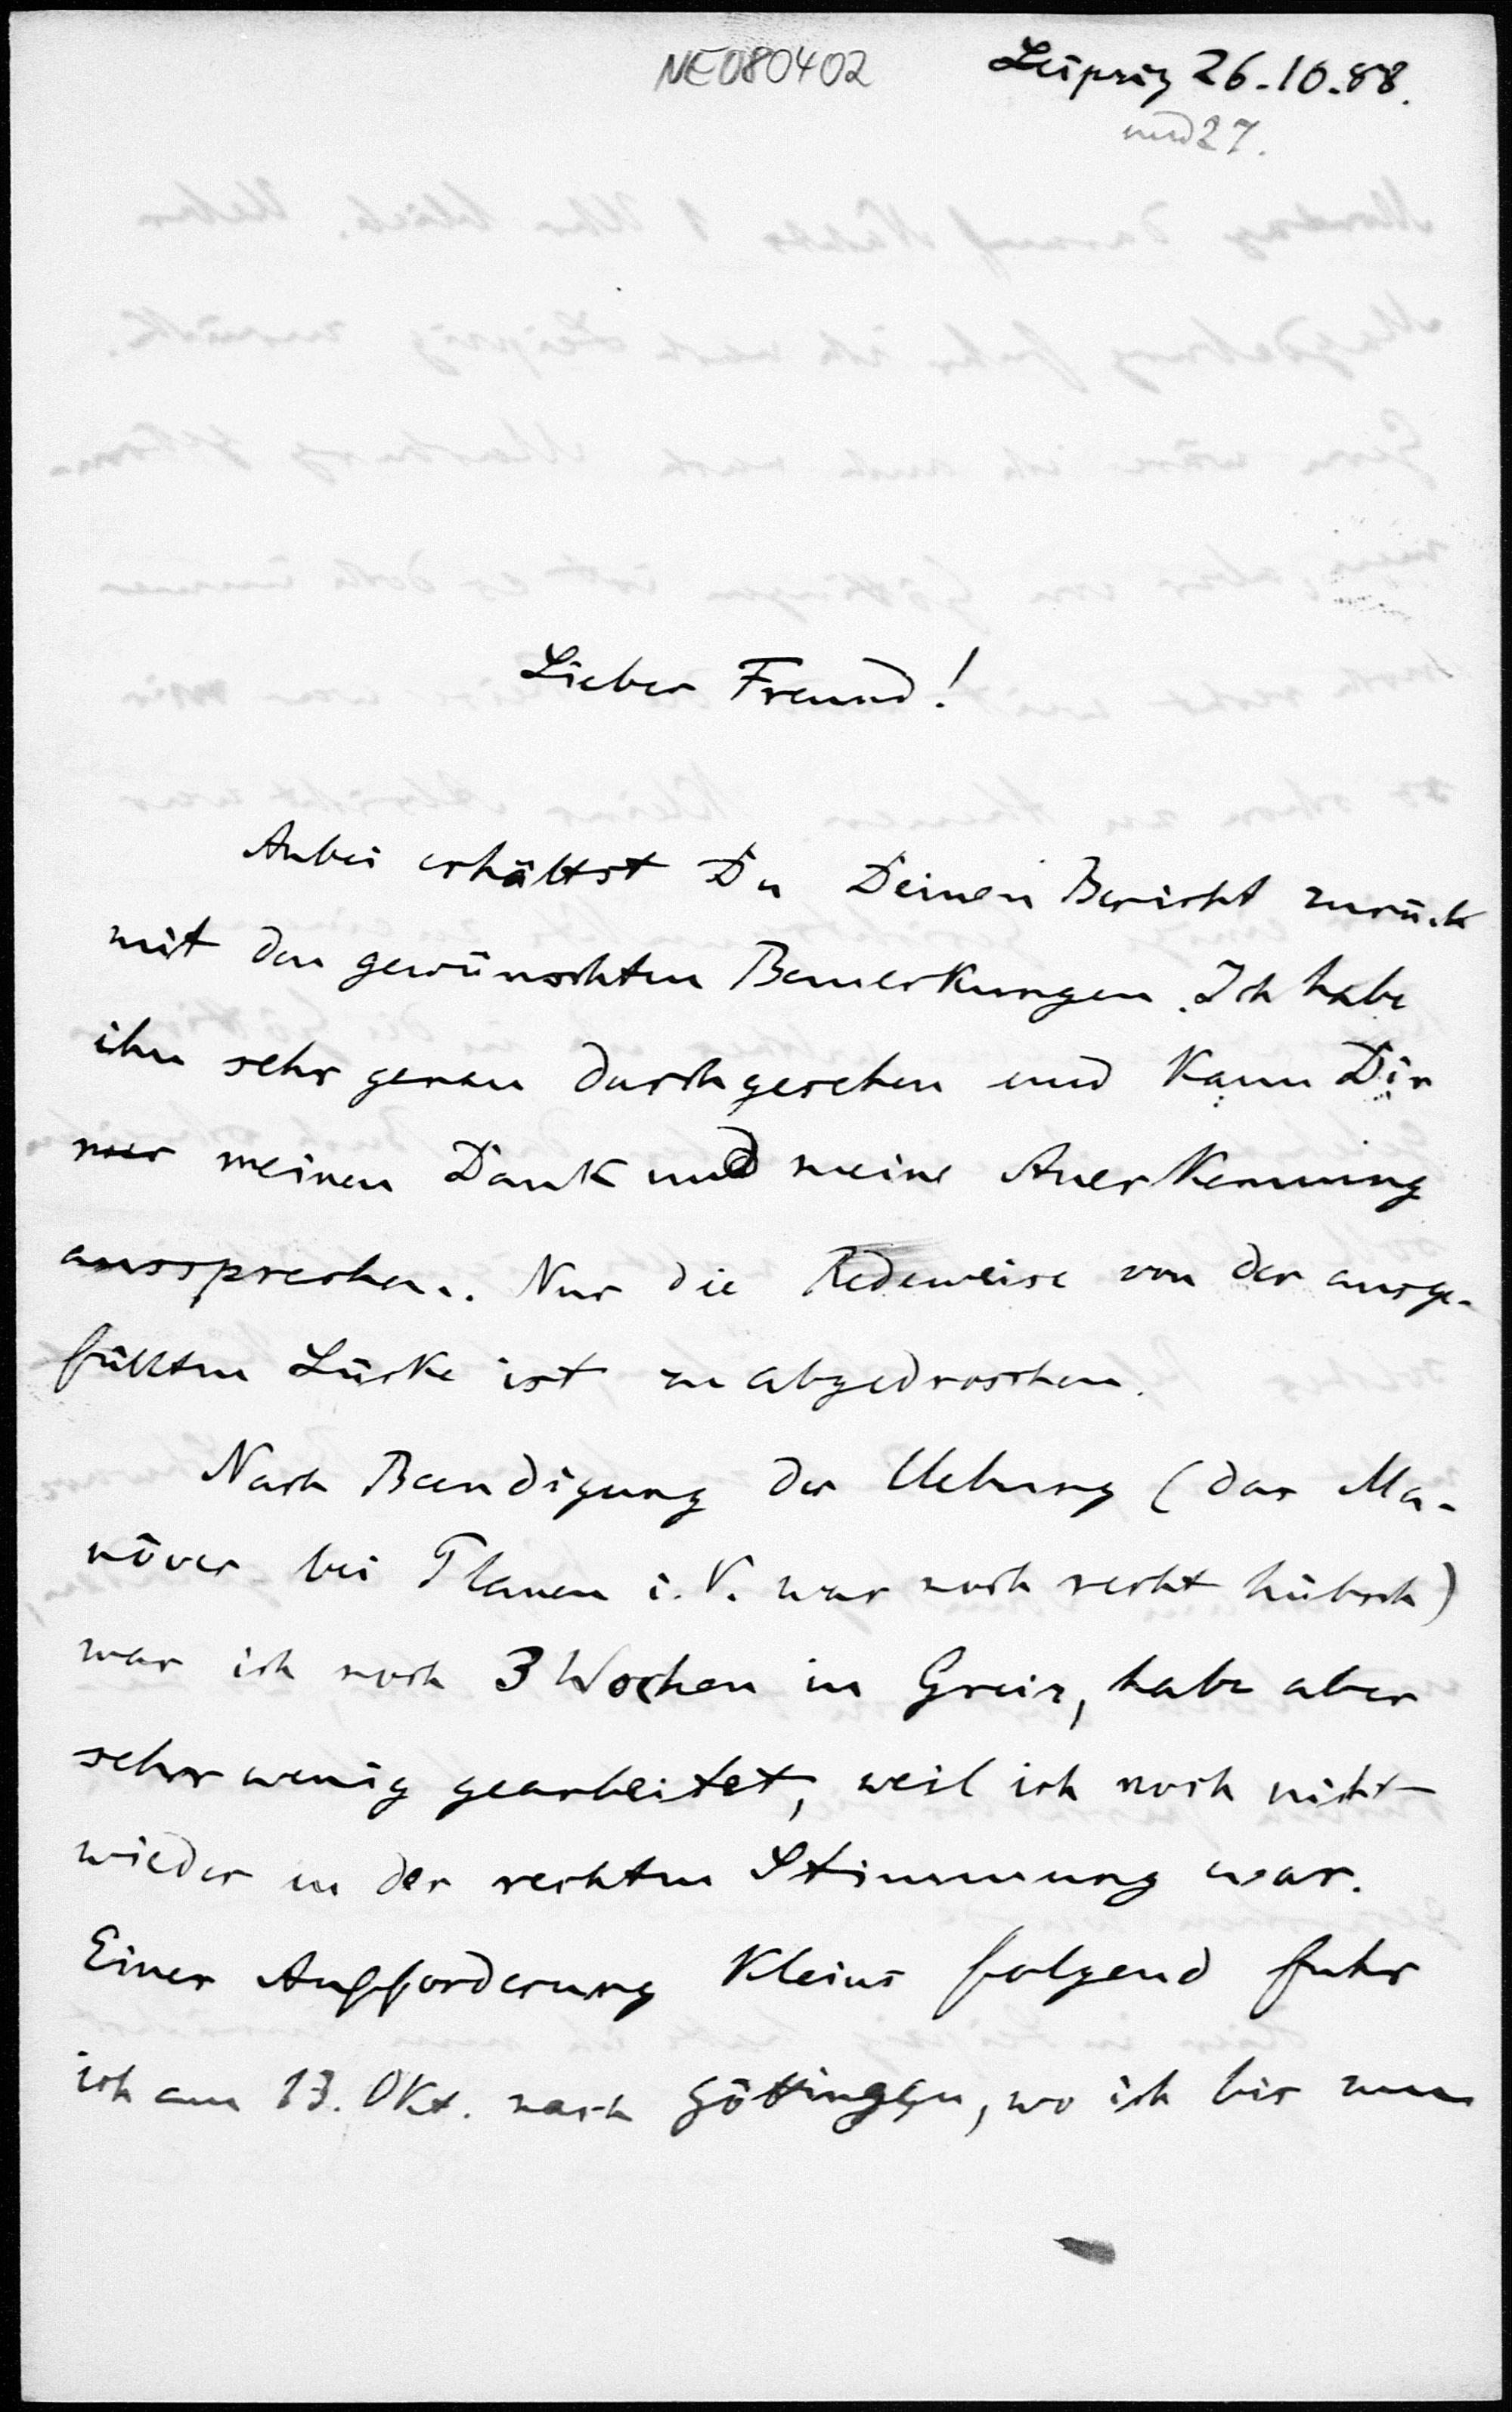 NE080402
Leipzig 26.10.88.
und 27.
Lieber Freund!
Anbei erhältst Du Deinen Bericht zurück
mit den gewünschten Bemerkungen. Ich habe
ihn sehr genau durchgesehen und kann Dir
nur meinen Dank und meine Anerkennung
aussprechen. Nur die Redeweise von der ausge-
füllten Lücke ist zu abgedroschen.
Nach Beendigung der Uebung (das Ma-
növer bei Plauen i. V. war noch recht hübsch)
war ich noch 3 Wochen in Greiz, habe aber
sehr wenig gearbeitet, weil ich noch nicht
wieder in der rechten Stimmung war.
Einer Aufforderung Kleins folgend fuhr
ich am 13. Okt. nach Göttingen, wo ich bis zum